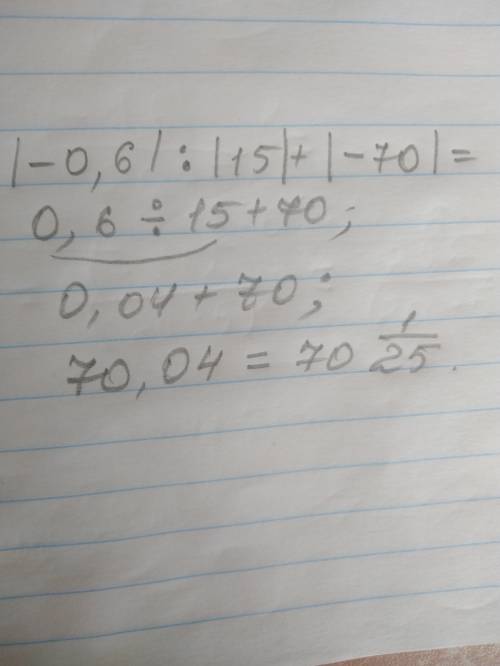 |-0,6| : |15| + |-70| =
0,6 ÷ 15 + 70;
0,04 + 70;
70,04 = 70 1/25.